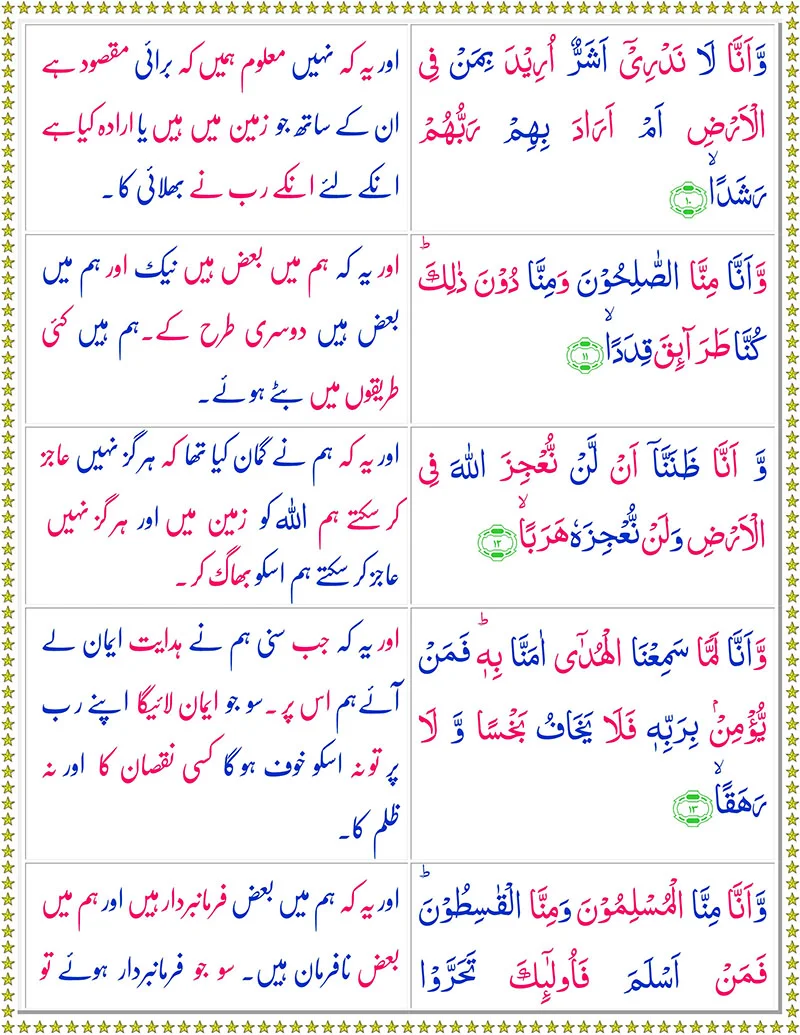 وَّاَنَّا لَا نَدْرِىْۤ اَشَرٌّ اُرِيْدَ بِمَنْ فِى
الْاَرْضِ اَمْ اَرَادَ بِهِمْ رَبُّهُمْ
رَشَدًا ۙ ۱۰
اور یہ کہ نہیں معلوم ہمیں کہ برائی مقصود ہے
ان کے ساتھ جو زمین میں ہیں یا ارادہ کیا ہے
انکے لئے انکے رب نے بھلائی کا۔
وَّاَنَّا مِنَّا الصّٰلِحُوْنَ وَمِنَّا دُوْنَ ذٰلِكَ ؕ
كُنَّا طَرَآئِقَ قِدَدًا ۙ ۱۱
اور یہ کہ ہم میں بعض ہیں نیک اور ہم میں
بعض ہیں دوسری طرح کے۔ ہم ہیں کئی
طریقوں میں بٹے ہوئے۔
وَّ اَنَّا ظَنَنَّاۤ اَنْ لَّنْ نُّعْجِزَ اللهَ فِى
الْاَرْضِ وَلَنْ نُّعْجِزَهٗ هَرَبًا ۙ ۱۲
اور یہ کہ ہم نے گمان کیا تھا کہ ہر گز نہیں عاجز
کر سکتے ہم اللہ کو زمین میں اور ہر گز نہیں
عاجز کر سکتے ہم اسکو بھاگ کر۔
وَّاَنَّا لَمَّا سَمِعْنَا الْهُدٰٓى اٰمَنَّا بِهٖ ؕ فَمَنْ
يُّؤْمِنْۢ بِرَبِّهٖ فَلَا يَخَافُ بَخْسًا وَّ لَا
رَهَقًا ۙ ۱۳
اور یہ کہ جب سنی ہم نے ہدایت ایمان لے
آئے ہم اس پر۔ سو جو ایمان لائیگا اپنے رب
پر تو نہ اسکو خوف ہو گا کسی نقصان کا اور نہ
ظلم کا۔
وَّاَنَّا مِنَّا الْمُسْلِمُوْنَ وَمِنَّا الْقٰسِطُوْنَ ؕ
فَمَنْ اَسْلَمَ فَاُولٰٓئِكَ تَحَرَّوْا
اور یہ کہ ہم میں بعض فرمانبردار ہیں اور ہم میں
بعض نافرمان ہیں۔ سو جو فرمانبردار ہوئے تو